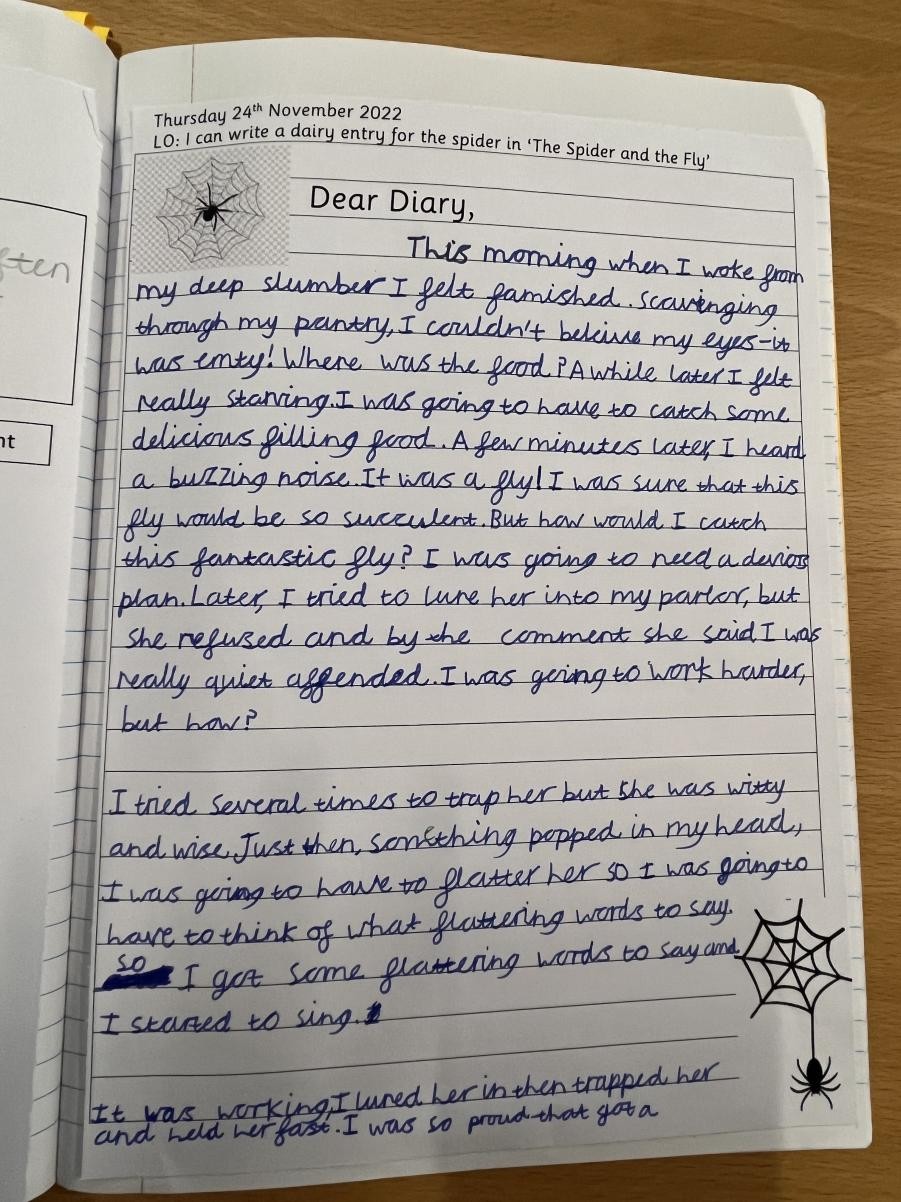 Thursday 24th November 2022
LO: I can write a dairy entry for the spider in 'The Spider and the Fly'
Dear Diary,
This morning when I woke from
my deep slumber I felt famished. scavinging
through my pantry, I couldn't beleive my eyes-it
was emty! Where was the food? A while later I felt
really starving. I was going to have to catch some
delicious filling food. A few minutes later, I heard
a buzzing noise. It was a fly! I was sure that this
fly would be so succulent. But how would I catch
this fantastic fly? I was going to need a devios
plan. Later, I tried to lure her into my parlor, but
she refused and by the comment she said I was
really quiet affended. I was going to work harder,
but how?
I tried several times to trap her but she was witty
and wise. Just then, something popped in my head,
I was going to have to flatter her so I was going to
have to think of what flattering words to say.
so I got some flattering words to say and
I started to sing.
It was working, I lured her in then trapped her
and held her fast. I was so proud that got a
ften
nt